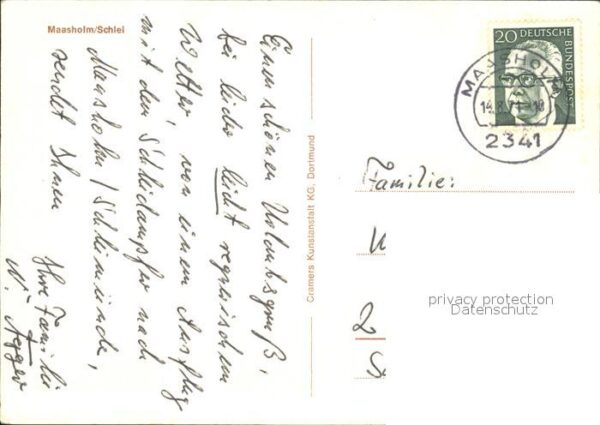 Maasholm/Schlei
Einen schönen Urlaubsgruß,
bei leider leicht regnerischem
Wetter, von einem Ausflug
mit dem Schleidampfer nach
Maasholm / Schleimünde,
sendet Ihnen
Ihre Familie
N.
Cramers Kunstanstalt KG, Dortmund
20 DEUTSCHE
BUNDESPOST
MAASHOLM
14.8.71-10
2341
Familie:
privacy protection
Datenschutz